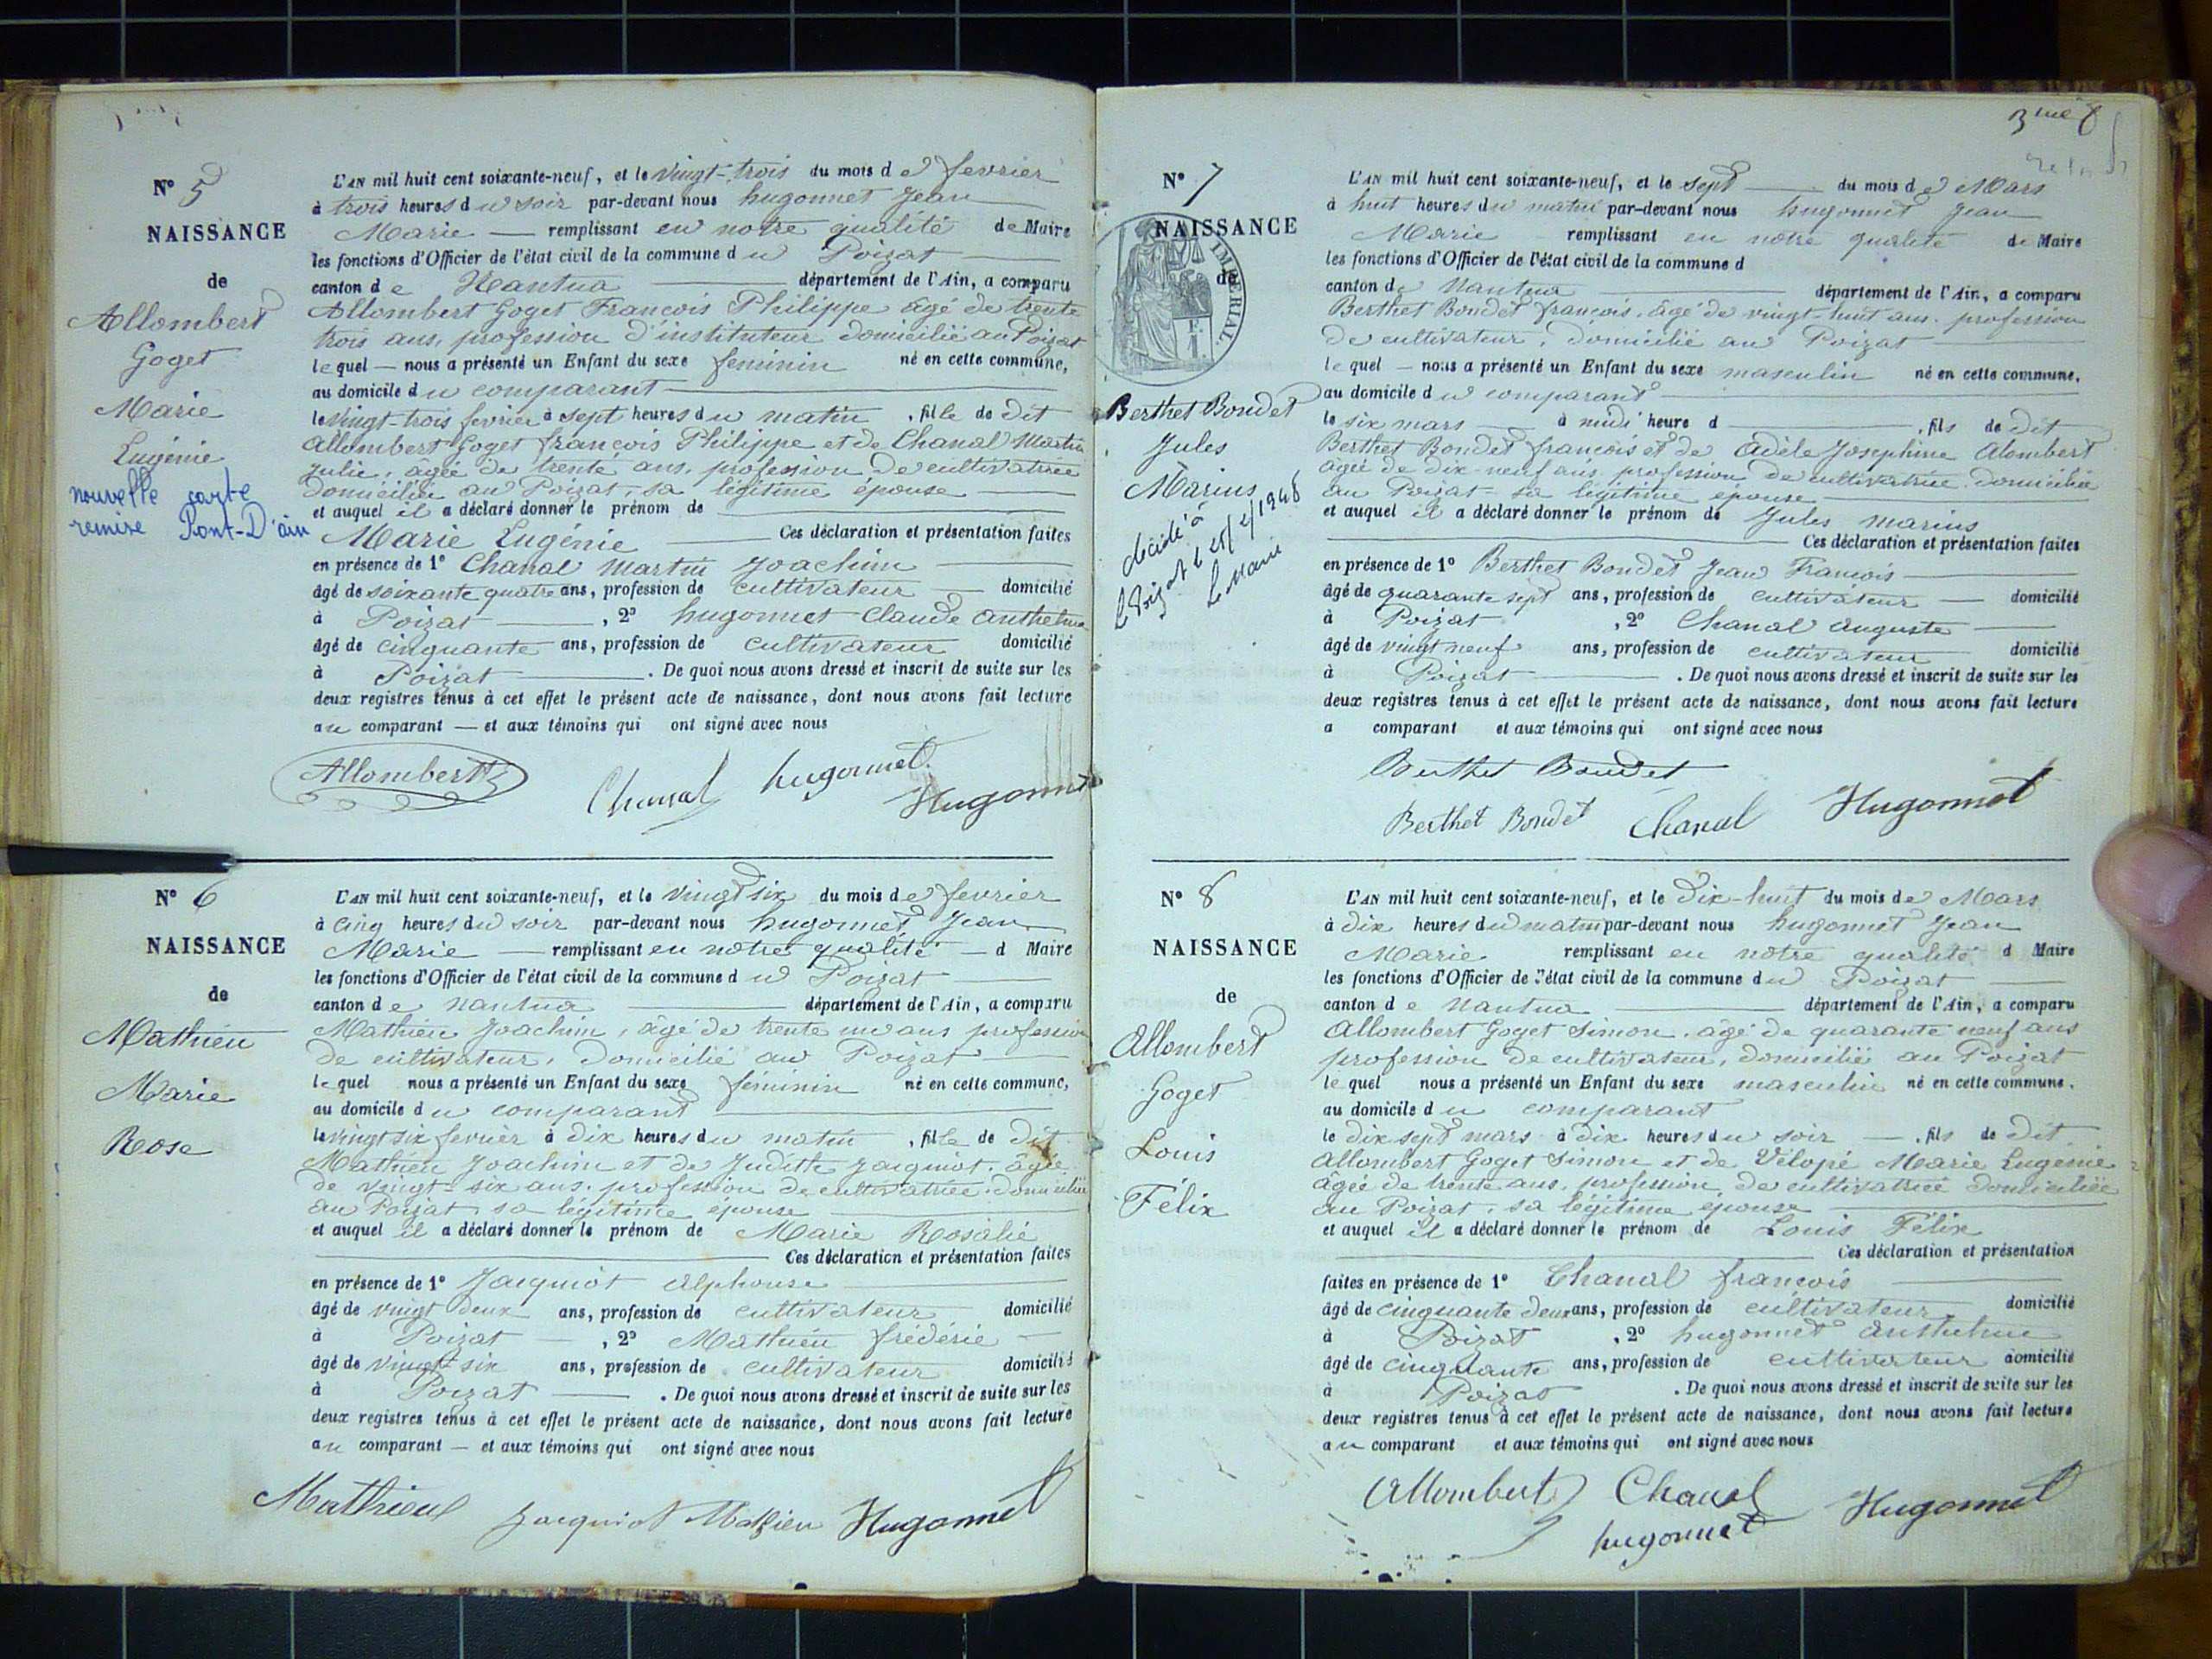 N° 5
NAISSANCE
de
Allombert
Goget
Marie
Eugénie
nouvelle carte
remise Pont-D'ain
L'AN mil huit cent soixante-neuf, et le vingt-trois du mois de fevrier
à trois heures du soir par-devant nous hugonnet Jean
Marie — remplissant en notre qualité de Maire
les fonctions d'Officier de l'état civil de la commune du Poizat
canton de Nantua département de l'Ain, a comparu
Allombert Goget François Philippe âgé de trente
trois ans, profession d'instituteur domicilié au Poizat
lequel — nous a présenté un Enfant du sexe feminin né en cette commune,
au domicile du comparant
le vingt-trois fevrier à sept heures du matin, fille de dit
Allombert Goget françois Philippe et de Chanal Martin
Julie, âgée de trente ans, profession de cultivatrice
domiciliée au Poizat, sa légitime épouse
et auquel il a déclaré donner le prénom de
Marie Eugénie Ces déclaration et présentation faites
en présence de 1° Chanal Martin Joachim
âgé de soixante quatre ans, profession de cultivateur domicilié
à Poizat, 2° hugonnet Claude Anthelme
âgé de cinquante ans, profession de cultivateur domicilié
à Poizat. De quoi nous avons dressé et inscrit de suite sur les
deux registres tenus à cet effet le présent acte de naissance, dont nous avons fait lecture
au comparant — et aux témoins qui ont signé avec nous
Allombert
Chanal hugonnet Hugonnet
N° 6
NAISSANCE
de
Mathieu
Marie
Rose
L'AN mil huit cent soixante-neuf, et le vingt six du mois de fevrier
à cinq heures du soir par-devant nous hugonnet Jean
Marie — remplissant en notre qualité — d Maire
les fonctions d'Officier de l'état civil de la commune du Poizat
canton de Nantua département de l'Ain, a comparu
Mathieu Joachim, âgé de trente un ans profession
de cultivateur, domicilié au Poizat
lequel nous a présenté un Enfant du sexe féminin né en cette commune,
au domicile du comparant
le vingt six fevrier à dix heures du matin, fille de dit
Mathieu Joachim et de Judith Jacquiot, âgée
de vingt-six ans, profession de cultivatrice domiciliée
au Poizat sa légitime épouse
et auquel il a déclaré donner le prénom de Marie Rosalie
Ces déclaration et présentation faites
en présence de 1° Jacquiot Alphonse
âgé de vingt deux ans, profession de cultivateur domicilié
à Poizat, 2° Mathieu frédéric
âgé de vingt six ans, profession de cultivateur domicilié
à Poizat. De quoi nous avons dressé et inscrit de suite sur les
deux registres tenus à cet effet le présent acte de naissance, dont nous avons fait lecture
au comparant — et aux témoins qui ont signé avec nous
Mathieu Jacquiot Mathieu Hugonnet
3me
N° 7
NAISSANCE
de
IMPERIAL.
Berthet Bondet
Jules
Marius
décédé à
le Poizat le
Le Maire
L'AN mil huit cent soixante-neuf, et le sept du mois de Mars
à huit heures du matin par-devant nous hugonnet Jean
Marie remplissant en notre qualité de Maire
les fonctions d'Officier de l'état civil de la commune d
canton de Nantua département de l'Ain, a comparu
Berthet Bondet françois, âgé de vingt-huit ans, profession
de cultivateur, domicilié au Poizat
lequel — nous a présenté un Enfant du sexe masculin né en cette commune,
au domicile du comparant
le six mars à midi heure d, fils de dit
Berthet Bondet françois et de Adèle Joséphine Alombert
âgée de dix-neuf ans, profession de cultivatrice domiciliée
au Poizat sa légitime épouse
et auquel il a déclaré donner le prénom de Jules marius
Ces déclaration et présentation faites
en présence de 1° Berthet Bondet Jean François
âgé de quarante sept ans, profession de cultivateur — domicilié
à Poizat, 2° Chanal Auguste
âgé de vingt neuf ans, profession de cultivateur domicilié
à Poizat. De quoi nous avons dressé et inscrit de suite sur les
deux registres tenus à cet effet le présent acte de naissance, dont nous avons fait lecture
a comparant et aux témoins qui ont signé avec nous
Berthet Bondet
Berthet Bondet Chanal Hugonnet
N° 8
NAISSANCE
de
Allombert
Goget
Louis
Félix
L'AN mil huit cent soixante-neuf, et le dix-huit du mois de Mars
à dix heures du matin par-devant nous hugonnet Jean
Marie remplissant en notre qualité d Maire
les fonctions d'Officier de l'état civil de la commune du Poizat
canton de Nantua département de l'Ain, a comparu
Allombert Goget Simon, âgé de quarante neuf ans
profession de cultivateur, domicilié au Poizat
lequel nous a présenté un Enfant du sexe masculin né en cette commune.
au domicile du comparant
le dix sept mars à dix heures du soir —, fils de dit
Allombert Goget Simon et de Vélopé Marie Eugénie
âgée de trente ans, profession de cultivatrice domiciliée
au Poizat, sa légitime épouse
et auquel il a déclaré donner le prénom de Louis Félix
Ces déclaration et présentation
faites en présence de 1° Chanal françois
âgé de cinquante deux ans, profession de cultivateur domicilié
à Poizat, 2° hugonnet Anthelme
âgé de cinquante ans, profession de cultivateur domicilié
à Poizat. De quoi nous avons dressé et inscrit de suite sur les
deux registres tenus à cet effet le présent acte de naissance, dont nous avons fait lecture
au comparant et aux témoins qui ont signé avec nous
Allombert Chanal Hugonnet
hugonnet